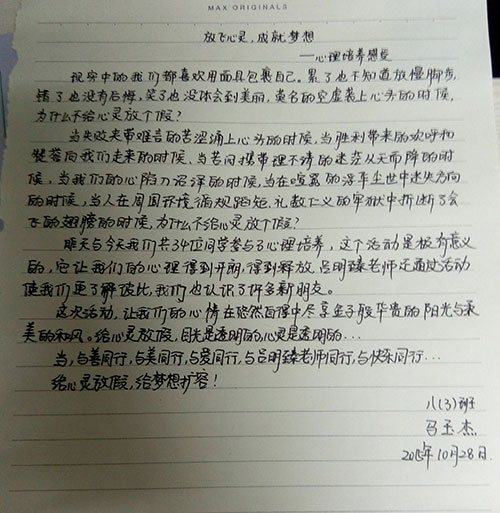 MAX ORIGINALS
放飞心灵,成就梦想
——心理培养感受
现实中的我们都喜欢用面具包裹自己。累了也不知道放慢脚步,
错了也没有后悔,笑了也没体会到美丽,莫名的空虚袭上心头的时候,
为什么不给心灵放个假?
当失败夹带难言的苦涩涌上心头的时候,当胜利带来的欢呼和
赞誉向我们走来的时候、当苦闷携带理不清的迷茫从天而降的时
候,当我们的心陷入沼泽的时候,当在喧嚣的浮华尘世中迷失方向
的时候,当人在周围环境循规蹈矩、礼数仁义的牢狱中折断了会
飞的翅膀的时候,为什么不给心灵放个假?
昨天与今天我们共34位同学参与了心理培养,这个活动是极有意义
的,它让我们的心理得到开朗,得到释放,吕明臻老师还通过活动
使我们更了解彼此,我们也认识了许多新朋友。
这次活动,让我们的心情在悠然自得中尽享金子般华贵的阳光与柔
美的和风。给心灵放假,目光是透明的,心灵是透明的…
当,与善同行,与美同行,与爱同行,与吕明臻老师同行,与快乐同行…
给心灵放假,给梦想扩容!
八(3)班
马玉杰
2015年10月28日